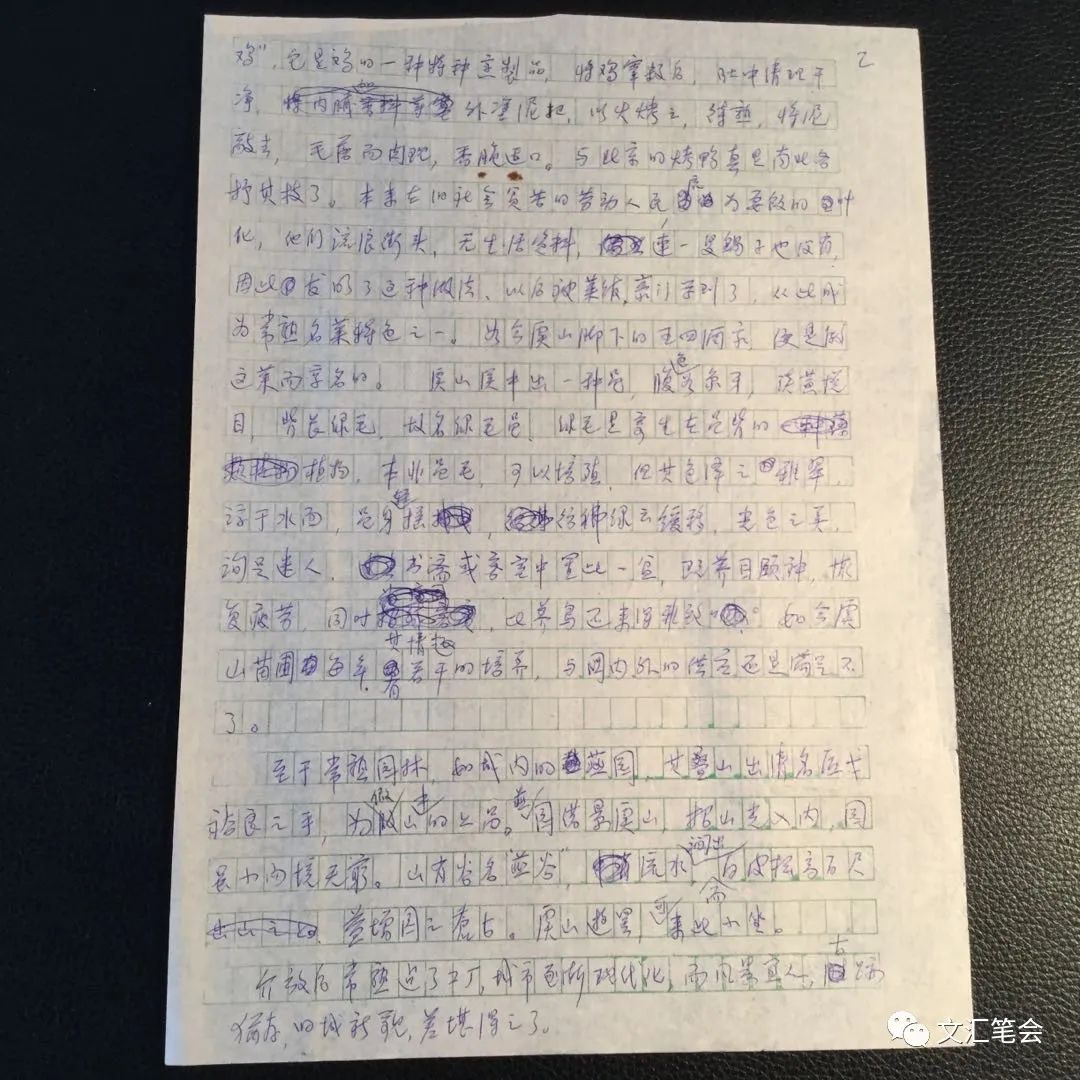 2
鸡”，它是鸡的一种特种烹製品，将鸡宰杀后，肚中清理干
净，外涂泥巴，以火烤之，待熟，将泥
敲去，毛落而肉现，香脆适口。与北京的烤鸭真是南北各
抒其技了。本来在旧社会贫苦的劳动人民 为要饭的叫
化，他们流浪街头，无生活资料，连一只锅子也没有，
因此发明了这种做法、以后被菜馆 学到了，从此成
为常熟名菜特色之一。如今虞山脚下的王四酒家，便是因
这菜而享名的。 虞山溪中出一种龟，腹色 ，
目，背长绿毛，故名绿毛龟，绿毛是寄生在龟背的
植物，本非龟毛，可以培殖，但其色泽之 翠，
浮于水面，龟身 ，绿云缓移，光色之美，
洵是迷人，书斋或客室中置此一缸，既养目颐神，恢
复疲劳，同时 ，比养鸟还来得雅致。如今虞
其情趣
山苗圃每年有若干的培养，与国内外的供应还是满足不
了。
至于常熟园林，如城内的燕园，其叠山出清名匠戈
裕良之手，为假山的上品。燕园借景虞山，招山光入内，园
虽小而境无穷。山有谷名“燕谷”，流水 涧出，白皮松高百尺
益增园之苍古。虞山游罢，可来此小坐。
介放后常熟 了工厂，城市逐渐现代化，而风景宜人，古蹟
犹存，旧城新貌，差堪得之了。
文汇笔会